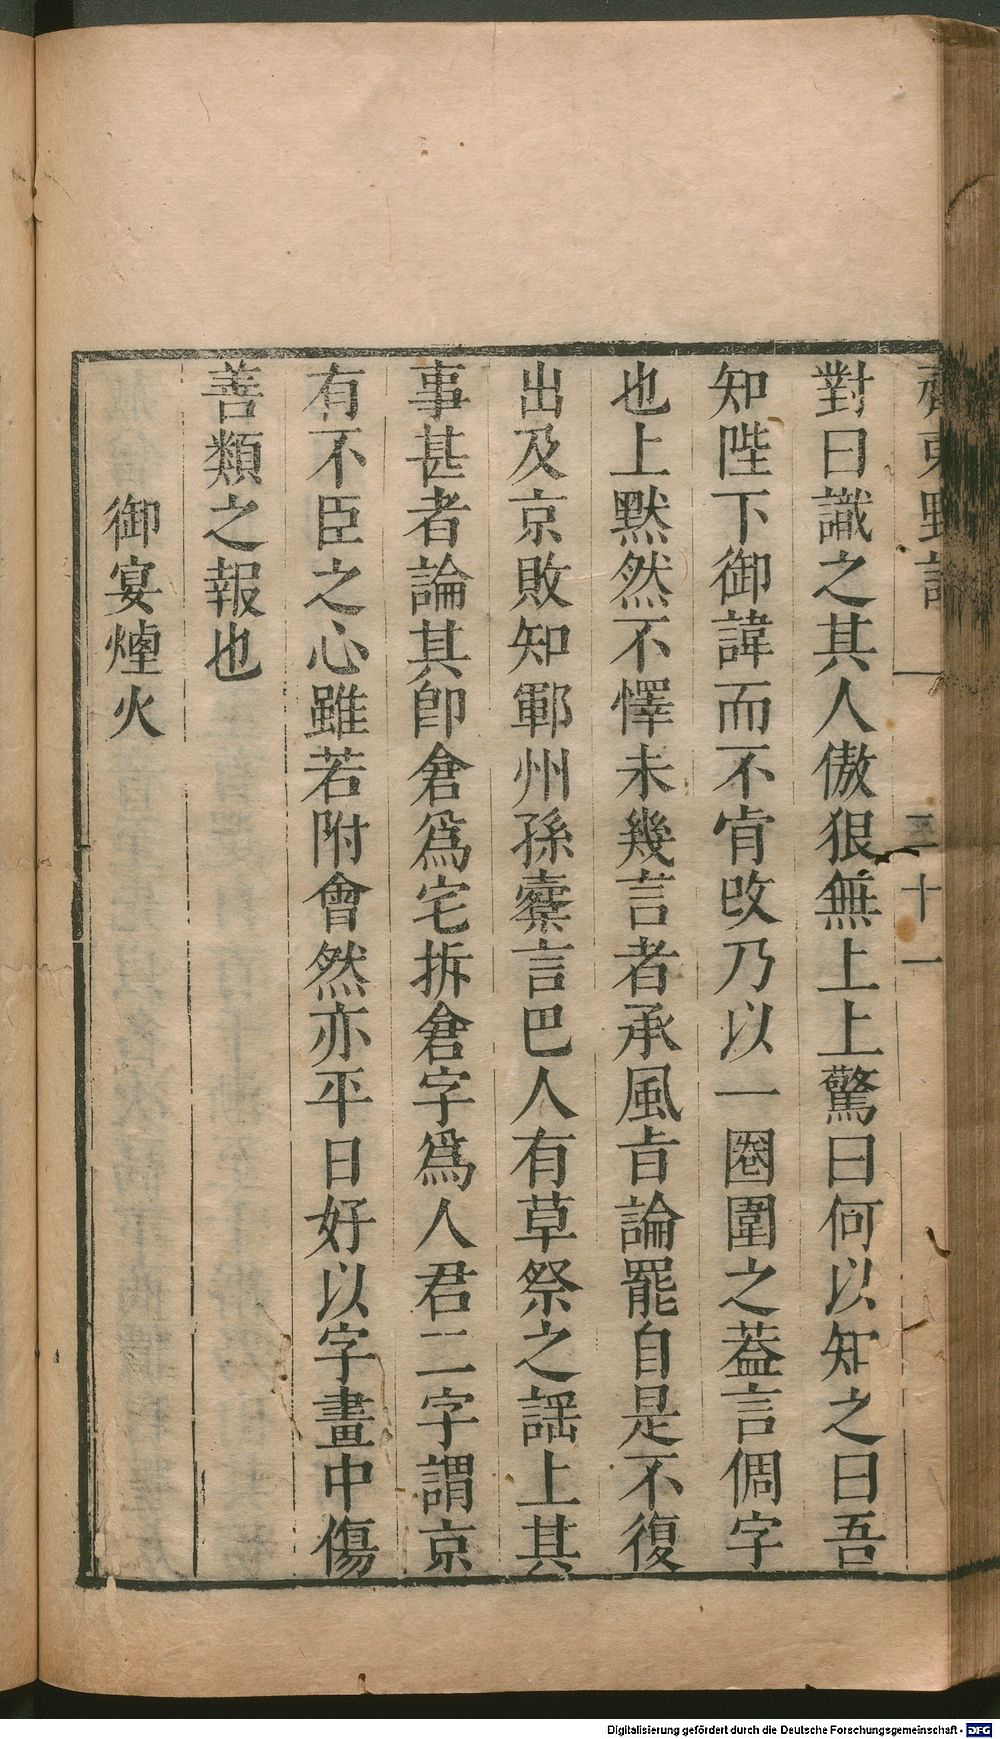 齊東野語 三十一
對曰識之其人傲狠無上上驚曰何以知之曰吾
知陛下御諱而不肯改乃以一圈圍之葢言倜字
也上默然不懌未幾言者承風旨論罷自是不復
出及京敗知鄆州孫橐言巴人有草祭之謡上其
事甚者論其卽倉爲宅拆倉字爲人君二字謂京
有不臣之心雖若附會然亦平日好以字畫中傷
善類之報也
御宴煙火
Digitalisierung gefördert durch die Deutsche Forschungsgemeinschaft - DFG